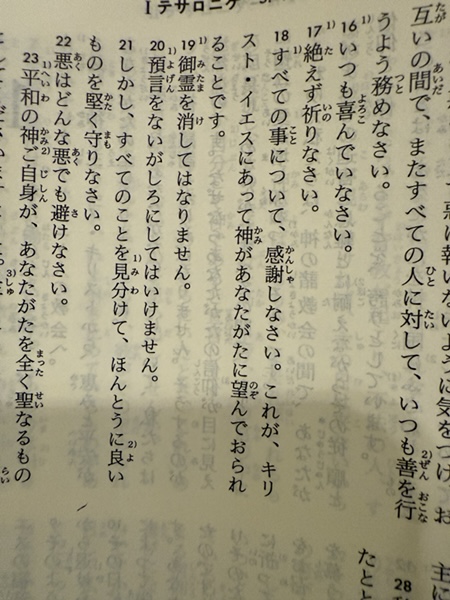 Ⅰテサロニケ
悪に報いないように気をつけ、お
互いの間で、またすべての人に対して、いつも善を行
うよう務めなさい。
16いつも喜んでいなさい。
17絶えず祈りなさい。
18すべての事について、感謝しなさい。これが、キリ
スト・イエスにあって神があなたがたに望んでおられ
ることです。
19御霊を消してはなりません。
20預言をないがしろにしてはいけません。
21しかし、すべてのことを見分けて、ほんとうに良い
ものを堅く守りなさい。
22悪はどんな悪でも避けなさい。
23平和の神ご自身が、あなたがたを全く聖なるもの
主に
28
たと